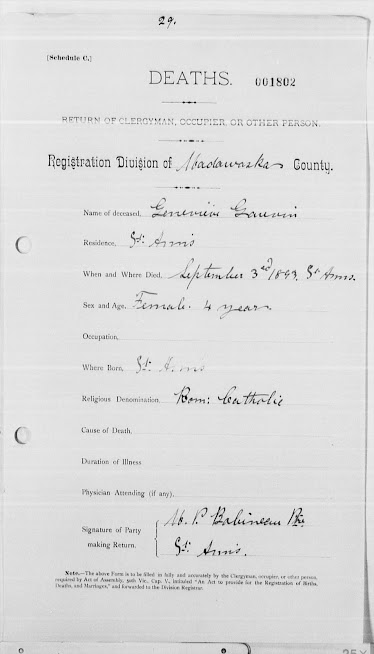 29.
[Schedule C.]
DEATHS. 001802
RETURN OF CLERGYMAN, OCCUPIER, OR OTHER PERSON.
Registration Division of Madawaska County.
Name of deceased, Geneviève Gauvin
Residence, St. Anns
When and Where Died, September 3rd 1893. St Anns.
Sex and Age, Female. 4 years
Occupation,
Where Born, St. Anns
Religious Denomination, Rom: Catholic
Cause of Death,
Duration of Illness
Physician Attending (if any),
Signature of Party making Return. M. P. Babineau Ptre
St. Anns.
NOTE.—The above Form is to be filled in fully and accurately by the Clergyman, occupier, or other person,
required by Act of Assembly, 50th Vic., Cap. V., intituled "An Act to provide for the Registration of Births,
Deaths, and Marriages," and forwarded to the Division Registrar.